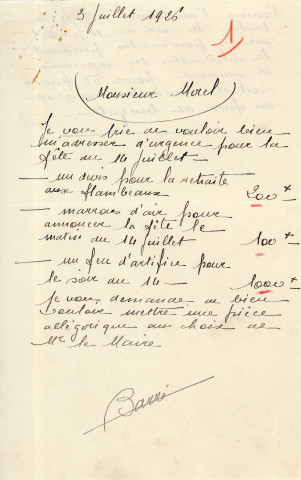 3 Juillet 1926
1
Monsieur Morel
Je vous prie de vouloir bien
m'adresser d'urgence pour la
fête du 14 juillet —
— un devis pour la retraite
aux flambeaux 200 +
— marrons d'air pour
annoncer la fête le
matin du 14 juillet 100 +
— un feu d'artifice pour
le soir du 14 — 1000 +
Je vous demande de bien
vouloir mettre une pièce
allégorique au choix de
Mr le Maire